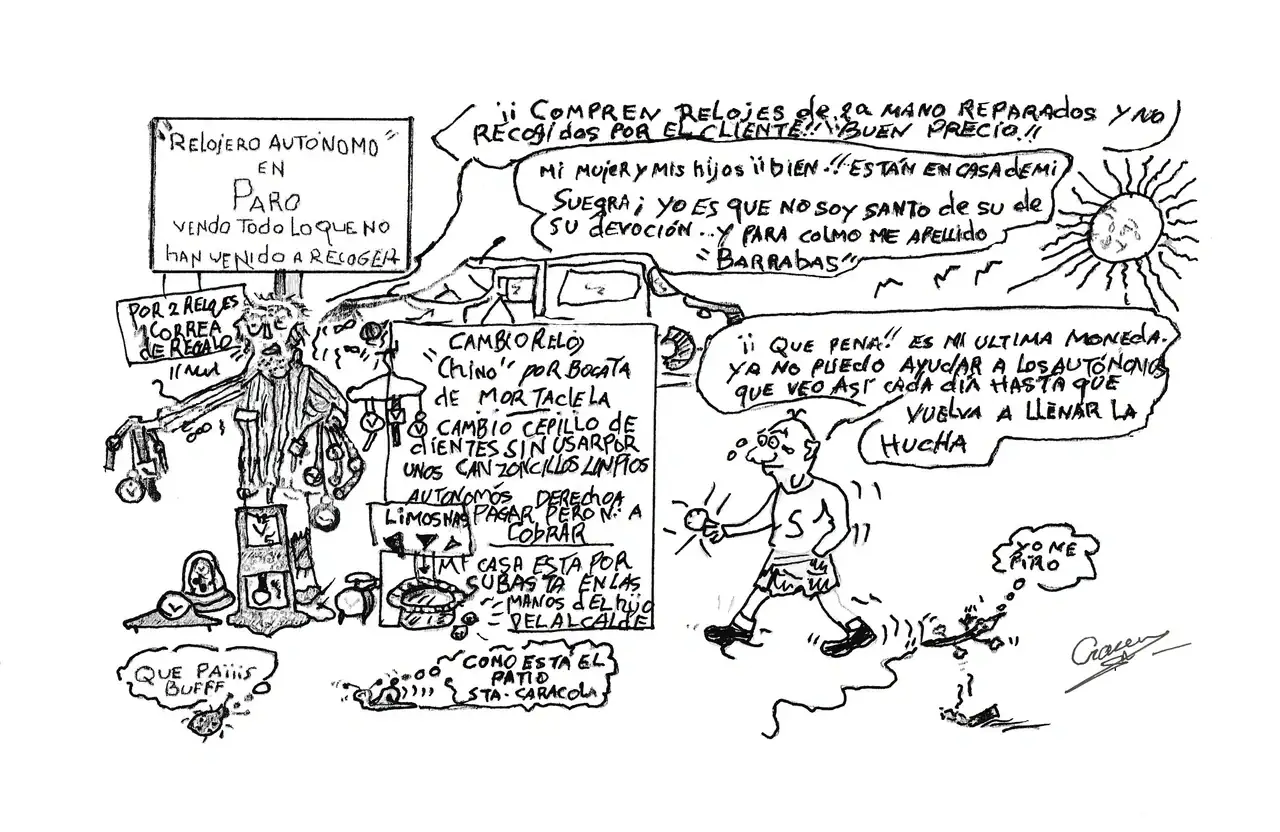 "RELOJERO AUTÓNOMO"
EN
PARO
VENDO TODO LO QUE NO
HAN VENIDO A RECOGER
POR 2 RELOJES
CORREA
DE REGALO
¡¡ COMPREN RELOJES de 2ª MANO REPARADOS Y NO
RECOGIDOS POR EL CLIENTE!! BUEN PRECIO!!
Mi MUJER Y MIS hijos ¡¡BIEN!! ESTÁN EN CASA dE MI
SUEGRA; YO ES QUE NO SOY SANTO de SU de
SU DEVOCIÓN.. Y PARA COLMO ME APELLIDO
"BARRABAS"
CAMBIO RELOJ
"Chino" POR BOCATA
de MORTADELA
CAMBIO CEPILLO DE
DIENTES SIN USAR POR
UNOS CANZONCILLOS LIMPIOS
AUTONOMÓS DERECHO A
PAGAR PERO NI A
COBRAR
LIMOSNAS
MI CASA ESTA POR
SUBASTA EN LAS
MANOS dEL hijO
DEL ALCALDE
¡¡ QUE PENA!! ES MI ULTIMA MONEDA.
YA NO PUEDO AYUDAR A LOS AUTÓNOMOS
QUE VEO ASI CADA DÍA HASTA QUE
VUELVA A LLENAR LA
HUCHA
S
YO ME
PIRO
QUE PAiiiS
BUFFF
COMO ESTÁ EL
PATIO
STA. CARACOLA